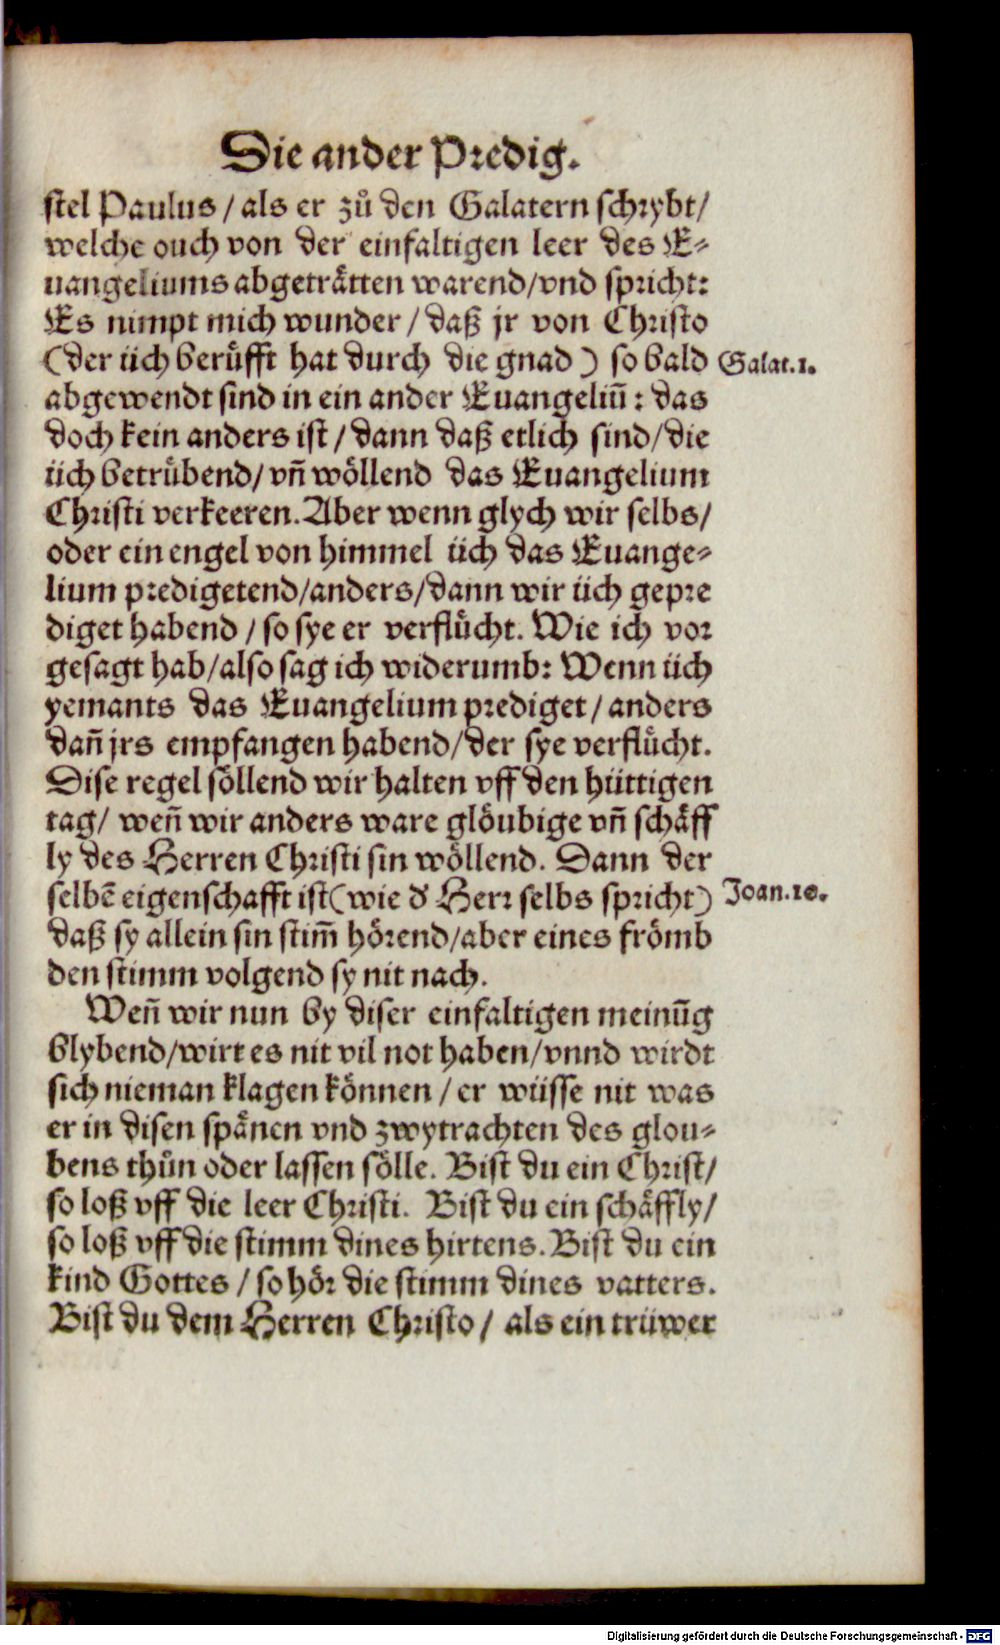 Die ander Predig.
stel Paulus / als er zů den Galatern schrybt/
welche ouch von der einfaltigen leer des E⸗
uangeliums abgeträtten warend/vnd spricht:
Es nimpt mich wunder / daß jr von Christo
(der üch berüfft hat durch die gnad) so bald
Galat.1.
abgewendt sind in ein ander Euangeliū: das
doch kein anders ist / dann daß etlich sind/die
üch betrübend/ vñ wöllend das Euangelium
Christi verkeeren. Aber wenn glych wir selbs/
oder ein engel von himmel üch das Euange⸗
lium predigetend/anders/dann wir üch gepre
diget habend / so sye er verflücht. Wie ich vor
gesagt hab/also sag ich widerumb: Wenn üch
yemants das Euangelium prediget / anders
dañ jrs empfangen habend/der sye verflücht.
Dise regel söllend wir halten vff den hüttigen
tag/ weñ wir anders ware glöubige vñ schäff
ly des Herren Christi sin wöllend. Dann der
selbē eigenschafft ist (wie d' Herr selbs spricht)
Joan.10.
daß sy allein sin stim̄ hörend/aber eines frömb
den stimm volgend sy nit nach.
Weñ wir nun by diser einfaltigen meinūg
blybend/wirt es nit vil not haben/vnnd wirdt
sich nieman klagen können / er wüsse nit was
er in disen spänen vnd zwytrachten des glou⸗
bens thůn oder lassen sölle. Bist du ein Christ/
so loß vff die leer Christi. Bist du ein schäffly/
so loß vff die stimm dines hirtens. Bist du ein
kind Gottes / so hör die stimm dines vatters.
Bist du dem Herren Christo / als ein trüwer
Digitalisierung gefördert durch die Deutsche Forschungsgemeinschaft - DFG